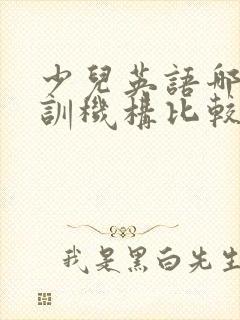 少兒英語哪
訓機構比較
我是黑白先生